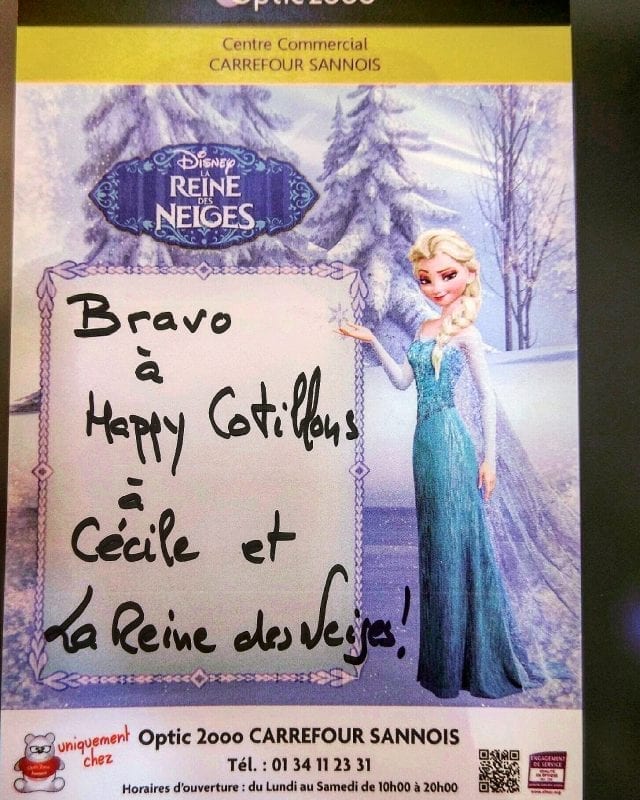 Optic 2ooo
Centre Commercial
CARREFOUR SANNOIS
Disney
LA
REINE
DES
NEIGES
Bravo
à
Happy Cotillons
à
Cécile et
La Reine des Neiges!
uniquement
chez
Optic 2ooo CARREFOUR SANNOIS
Tél. : 01 34 11 23 31
Horaires d'ouverture : du Lundi au Samedi de 10h00 à 20h00
ENGAGEMENT
DE SERVICE